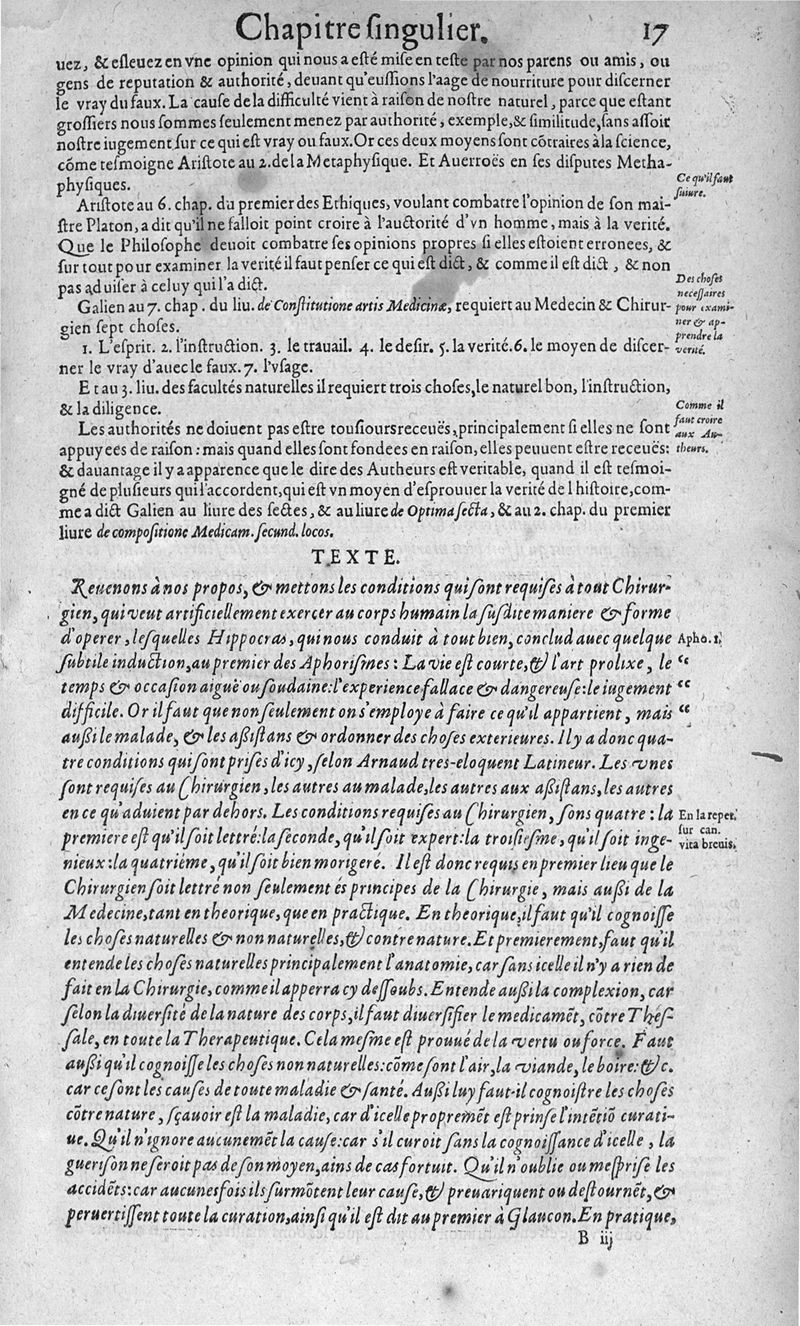 Chapitre ſingulier. 17
uez, & eſleuez en vne opinion qui nous a eſté miſe en teſte par nos parens ou amis, ou
gens de reputation & authorité, deuant qu'euſſions l'aage de nourriture pour diſcerner
le vray du faux. La cauſe de la difficulté vient à raiſon de noſtre naturel, parce que eſtant
groſſiers nous ſommes ſeulement menez par authorité, exemple, & ſimilitude, ſans aſſoir
noſtre iugement ſur ce qui eſt vray ou faux. Or ces deux moyens ſont cõtraires à la ſcience,
cõme teſmoigne Ariſtote au 2. de la Metaphyſique. Et Auerroës en ſes diſputes Metha-
phyſiques.
Ce qu'il faut
ſuiure.
Ariſtote au 6. chap. du premier des Ethiques, voulant combatre l'opinion de ſon mai-
ſtre Platon, a dit qu'il ne falloit point croire à l'auctorité d'vn homme, mais à la verité.
Que le Philoſophe deuoit combatre ſes opinions propres ſi elles eſtoient erronees, &
ſur tout pour examiner la verité il faut penſer ce qui eſt dict, & comme il eſt dict, & non
pas aduiſer à celuy qui l'a dict.
Des choſes
neceſſaires
pour exami-
ner & ap-
prendre la
verité.
Galien au 7. chap. du liu. de Conſtitutione artis Medicinæ, requiert au Medecin & Chirur-
gien ſept choſes.
1. L'eſprit. 2. l'inſtruction. 3. le trauail. 4. le deſir. 5. la verité. 6. le moyen de diſcer-
ner le vray d'auec le faux. 7. l'vſage.
Et au 3. liu. des facultés naturelles il requiert trois choſes, le naturel bon, l'inſtruction,
& la diligence.
Comme il
faut croire
aux Au-
theurs.
Les authorités ne doiuent pas eſtre touſiours receuës, principalement ſi elles ne ſont
appuyees de raiſon: mais quand elles ſont fondees en raiſon, elles peuuent eſtre receuës:
& dauantage il y a apparence que le dire des Autheurs eſt veritable, quand il eſt teſmoi-
gné de pluſieurs qui l'accordent, qui eſt vn moyen d'eſprouuer la verité de l hiſtoire, com-
me a dict Galien au liure des ſectes, & au liure de Optima ſecta, & au 2. chap. du premier
liure de compoſitione Medicam. ſecund. locos.
TEXTE.
Reuenons à nos propos, & mettons les conditions qui ſont requiſes à tout Chirur-
gien, qui veut artificiellement exercer au corps humain la ſuſdite maniere & forme
d'operer, leſquelles Hippocras, qui nous conduit à tout bien, conclud auec quelque
Apho. 1.
ſubtile induction, au premier des Aphoriſmes: La vie eſt courte, & l'art prolixe, le
“
temps & occaſion aiguë ou ſoudaine: l'experience fallace & dangereuſe: le iugement
“
difficile. Or il faut que non ſeulement on s'employe à faire ce qu'il appartient, mais
“
außi le malade, & les aßiſtans & ordonner des choſes exterieures. Il y a donc qua-
tre conditions qui ſont priſes d'icy, ſelon Arnaud tres-eloquent Latineur. Les vnes
ſont requiſes au Chirurgien, les autres au malade, les autres aux aßiſtans, les autres
en ce qu'aduient par dehors. Les conditions requiſes au Chirurgien, ſons quatre: la
En la repet.
ſur can.
vita breuis.
premiere eſt qu'il ſoit lettré: la ſeconde, qu'il ſoit expert: la troiſieſme, qu'il ſoit inge-
nieux: la quatriéme, qu'il ſoit bien morigeré. Il eſt donc requis en premier lieu que le
Chirurgien ſoit lettré non ſeulement és principes de la Chirurgie, mais außi de la
Medecine, tant en theorique, que en practique. En theorique, il faut qu'il cognoiſſe
les choſes naturelles & non naturelles, & contre nature. Et premierement, faut qu'il
entende les choſes naturelles principalement l'anatomie, car ſans icelle il n'y a rien de
fait en la Chirurgie, comme il apperra cy deſſoubs. Entende außi la complexion, car
ſelon la diuerſité de la nature des corps, il faut diuerſifier le medicamẽt, cõtre Theſ-
ſale, en toute la Therapeutique. Cela meſme eſt prouué de la vertu ou force. Faut
außi qu'il cognoiſſe les choſes non naturelles: cõme ſont l'air, la viande, le boire: &c.
car ce ſont les cauſes de toute maladie & ſanté. Außi luy faut-il cognoiſtre les choſes
cõtre nature, ſçauoir eſt la maladie, car d'icelle propremẽt eſt prinſe l'intẽtiõ curati-
ue. Qu'il n'ignore aucunemẽt la cauſe: car s'il curoit ſans la cognoiſſance d'icelle, la
gueriſon ne ſeroit pas de ſon moyen, ains de cas fortuit. Qu'il n'oublie ou meſpriſe les
accidẽts: car aucunesfois ils ſurmõtent leur cauſe, & preuariquent ou deſtournẽt, &
peruertiſſent toute la curation, ainſi qu'il eſt dit au premier à Glaucon. En pratique,
B iij